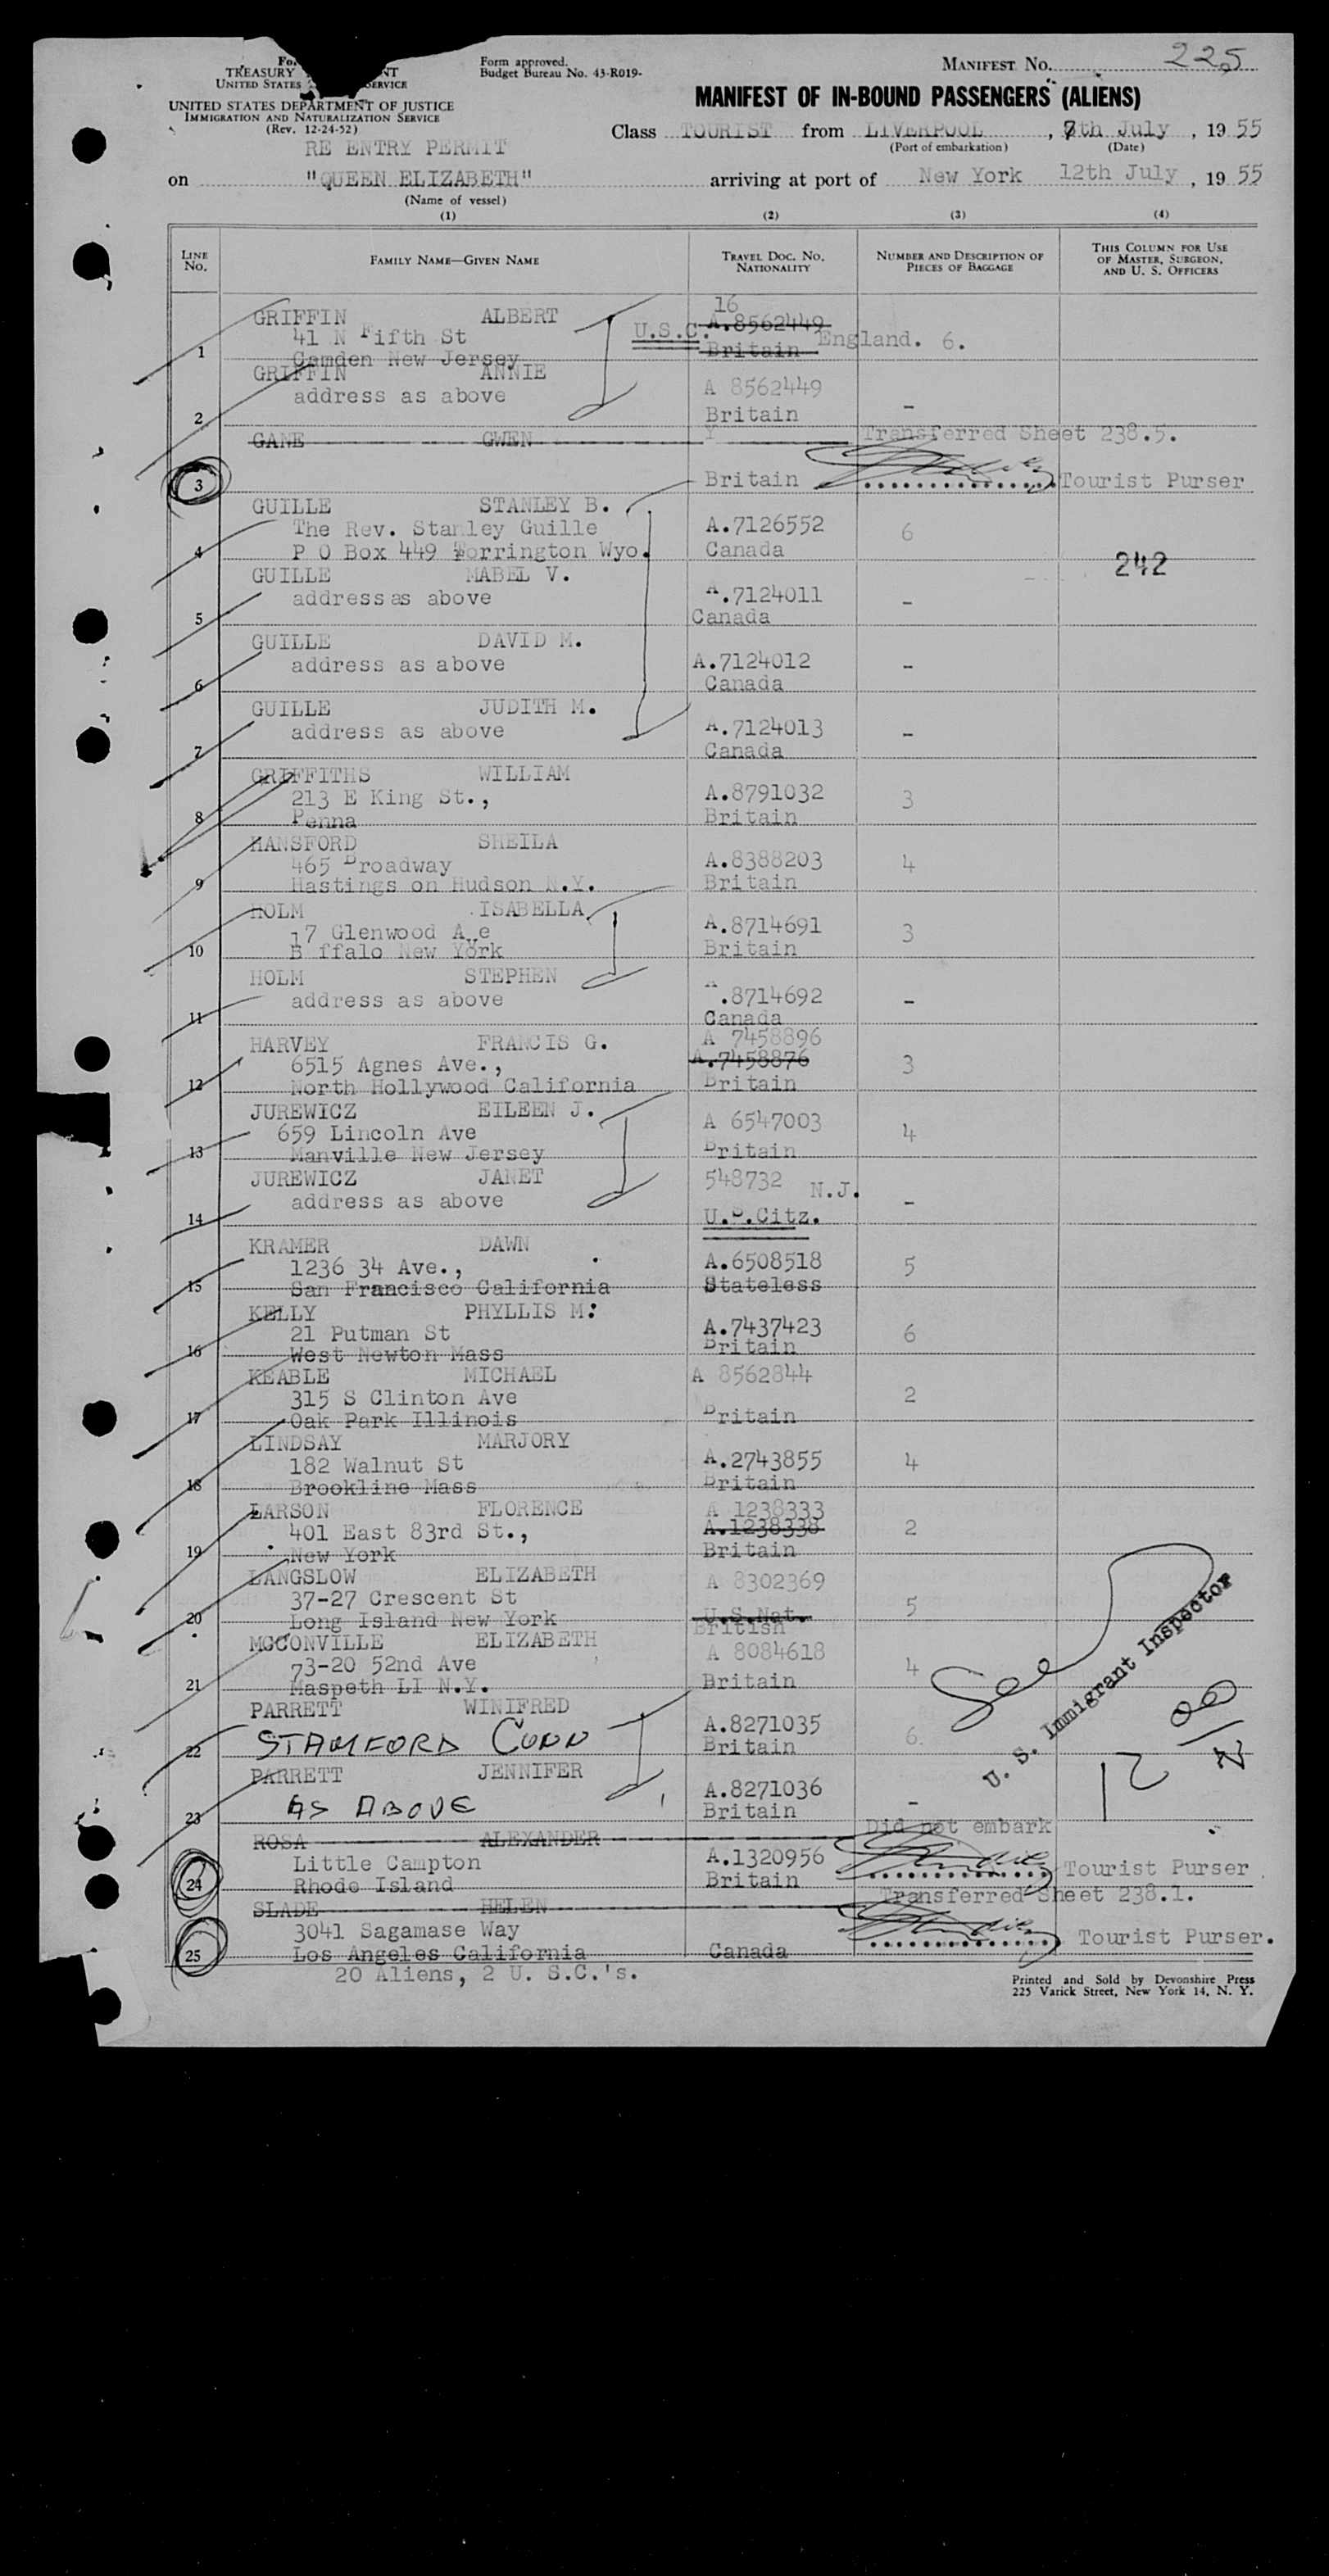 Form approved.
Budget Bureau No. 43-R019-
MANIFEST No. 225
TREASURY
UNITED STATES SERVICE
UNITED STATES DEPARTMENT OF JUSTICE
IMMIGRATION AND NATURALIZATION SERVICE
(Rev. 12-24-52)
MANIFEST OF IN-BOUND PASSENGERS (ALIENS)
Class TOURIST from LIVERPOOL, 7th July, 19 55
(Port of embarkation) (Date)
RE ENTRY PERMIT
on "QUEEN ELIZABETH" arriving at port of New York 12th July, 19 55
(Name of vessel)
(1) (2) (3) (4)
LINE NO.
FAMILY NAME—GIVEN NAME
TRAVEL DOC. NO. NATIONALITY
NUMBER AND DESCRIPTION OF PIECES OF BAGGAGE
THIS COLUMN FOR USE OF MASTER, SURGEON, AND U. S. OFFICERS
GRIFFIN ALBERT 16
41 N Fifth St U.S.C. A.8562449
1 Camden New Jersey Britain England. 6.
GRIFFIN ANNIE
address as above A 8562449
2 Britain -
GANE GWEN Y Transferred Sheet 238.5.
3 Britain Tourist Purser
GUILLE STANLEY B.
The Rev. Stanley Guille A.7126552 6
4 P O Box 449 Torrington Wyo. Canada
242
GUILLE MABEL V.
address as above A.7124011 -
5 Canada
GUILLE DAVID M.
address as above A.7124012 -
6 Canada
GUILLE JUDITH M.
address as above A.7124013 -
7 Canada
GRIFFITHS WILLIAM
213 E King St., A.8791032 3
8 Penna Britain
HANSFORD SHEILA
465 Broadway A.8388203 4
9 Hastings on Hudson N.Y. Britain
HOLM ISABELLA
17 Glenwood Ave A.8714691 3
10 B ffalo New York Britain
HOLM STEPHEN
address as above A.8714692 -
11 Canada
HARVEY FRANCIS G. A 7458896
6515 Agnes Ave., A.7458876 3
12 North Hollywood California Britain
JUREWICZ EILEEN J.
659 Lincoln Ave A 6547003 4
13 Manville New Jersey Britain
JUREWICZ JANET 548732 N.J.
address as above -
14 U.S.Citz.
KRAMER DAWN
1236 34 Ave., A.6508518 5
15 San Francisco California Stateless
KELLY PHYLLIS M.
21 Putman St A.7437423 6
16 West Newton Mass Britain
KEABLE MICHAEL A 8562844
315 S Clinton Ave 2
17 Oak Park Illinois Britain
LINDSAY MARJORY
182 Walnut St A.2743855 4
18 Brookline Mass Britain
LARSON FLORENCE A 1238333
401 East 83rd St., A.1238338 2
19 New York Britain
LANGSLOW ELIZABETH A 8302369
37-27 Crescent St 5
20 Long Island New York U.S.Nat.
British
MCCONVILLE ELIZABETH
73-20 52nd Ave A 8084618 4
21 Maspeth LI N.Y. Britain
PARRETT WINIFRED
A.8271035 6.
22 STAMFORD CONN Britain
PARRETT JENNIFER
A.8271036 -
23 AS ABOVE Britain
See
U. S. Immigrant Inspector
ROSA ALEXANDER Did not embark
Little Campton A.1320956 Tourist Purser
24 Rhode Island Britain
SLADE HELEN Transferred Sheet 238.1.
3041 Sagamase Way Tourist Purser.
25 Los Angeles California Canada
20 Aliens, 2 U. S.C.'s.
Printed and Sold by Devonshire Press
225 Varick Street, New York 14, N. Y.